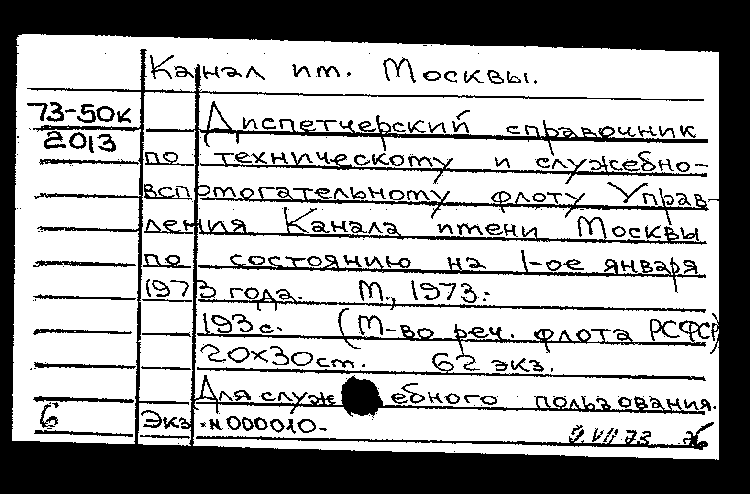 Канал им. Москвы.
73-50к
2013
Диспетчерский справочник
по техническому и служебно-
вспомогательному флоту Управ-
ления Канала имени Москвы
по состоянию на 1-ое января
1973 года. М., 1973.
193 с. (М-во реч. флота РСФСР)
20х30 ст. 62 экз.
Для служебного пользования.
6 Экз. №000010-
9.VII 73